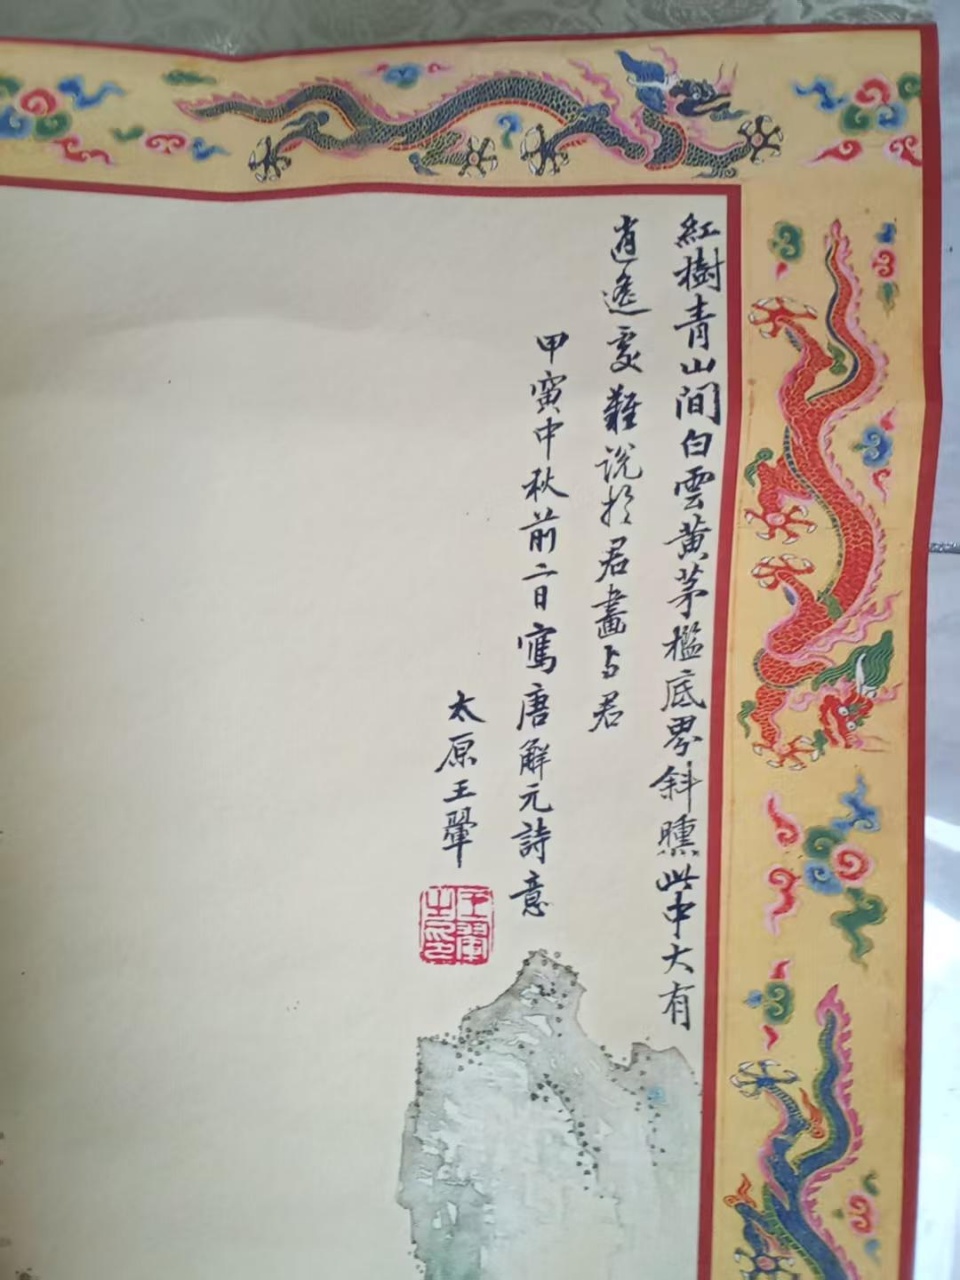 紅樹青山間白雲黃茅檐底界斜曛此中大有
逍遙處難說於君畫與君
甲寅中秋前二日寫唐解元詩意
太原王翬
王翬之印